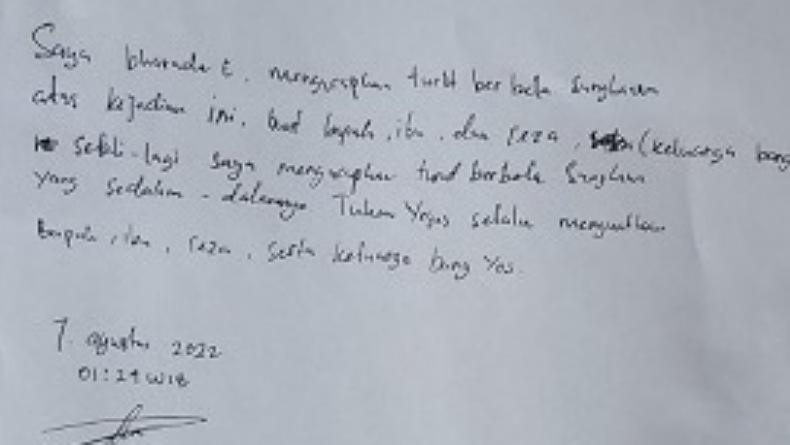 Saya bharada E. mengucapkan turut berbela sungkawa
atas kejadian ini. buat bapak, ibu, dan reza, (keluarga bang
sekali-lagi saya mengucapkan turut berbela sungkawa
yang sedalam-dalamnya Tuhan Yesus selalu menguatkan
bapak, ibu, reza, serta keluarga bang Yos.
7. agustus 2022
01:24 WIB